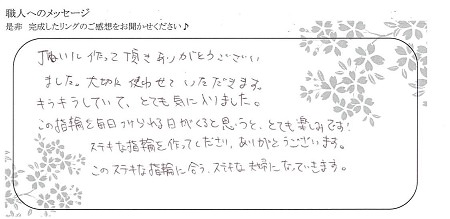 職人へのメッセージ
是非 完成したリングのご感想をお聞かせください♪
丁寧に作って頂きありがとうござい
ました。大切に使わせていただきます。
キラキラしていて、とても気に入りました。
この指輪を毎日つけられる日がくると思うと、とても楽しみです!
ステキな指輪を作ってくださり、ありがとうございます。
このステキな指輪に合う、ステキな夫婦になっていきます。